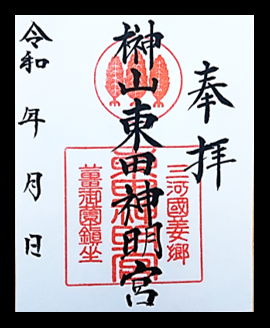 奉拝
三河國姜郷
榊山東田神明宮
薑御薗鎮坐
令和 年 月 日